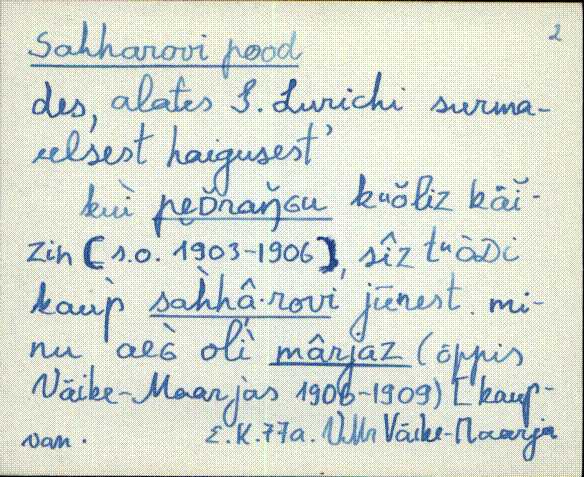 2
Sahharovi pood
des, alates G. Lurichi surma-
eelsest haigusest
kui peᴅraŋɢu kᵘŏliz kǟi-
zin (s.o. 1903-1906), sîz tᵘàᴅi
kaup̀ sah̀hâ·rovi jūnest. mi-
nu aeɢ olì mârjaz (õppis
Väike-Maarjas 1906-1909) [kaup-
van. E.K. 77a. VMr Väike-Maarja